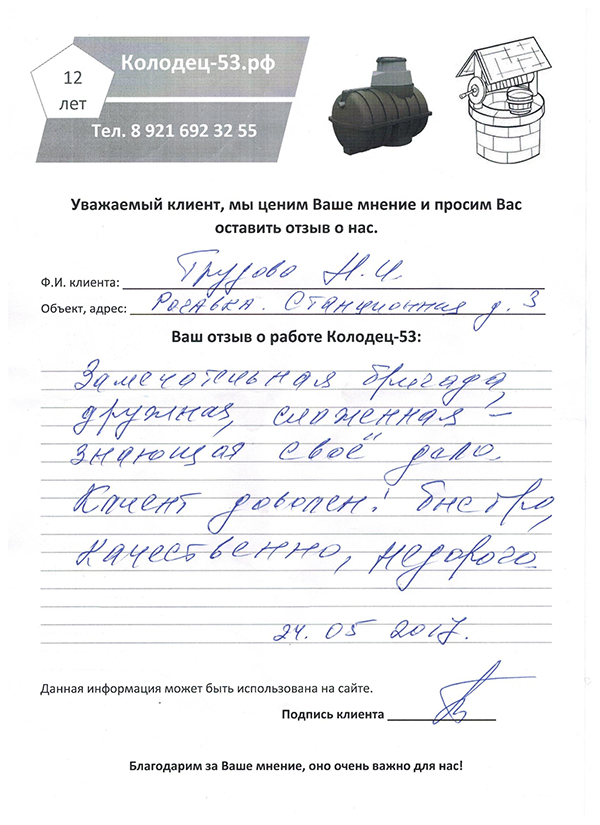 12
лет
Колодец-53.рф
Тел. 8 921 692 32 55
Уважаемый клиент, мы ценим Ваше мнение и просим Вас
оставить отзыв о нас.
Ф.И. клиента: Трудова Н.И.
Объект, адрес: Рогавка. Станционная д. 3
Ваш отзыв о работе Колодец-53:
Замечательная бригада,
дружная, слаженная –
знающая своё дело.
Клиент доволен! Быстро,
качественно, недорого
24. 05 2017.
Данная информация может быть использована на сайте.
Подпись клиента
Благодарим за Ваше мнение, оно очень важно для нас!